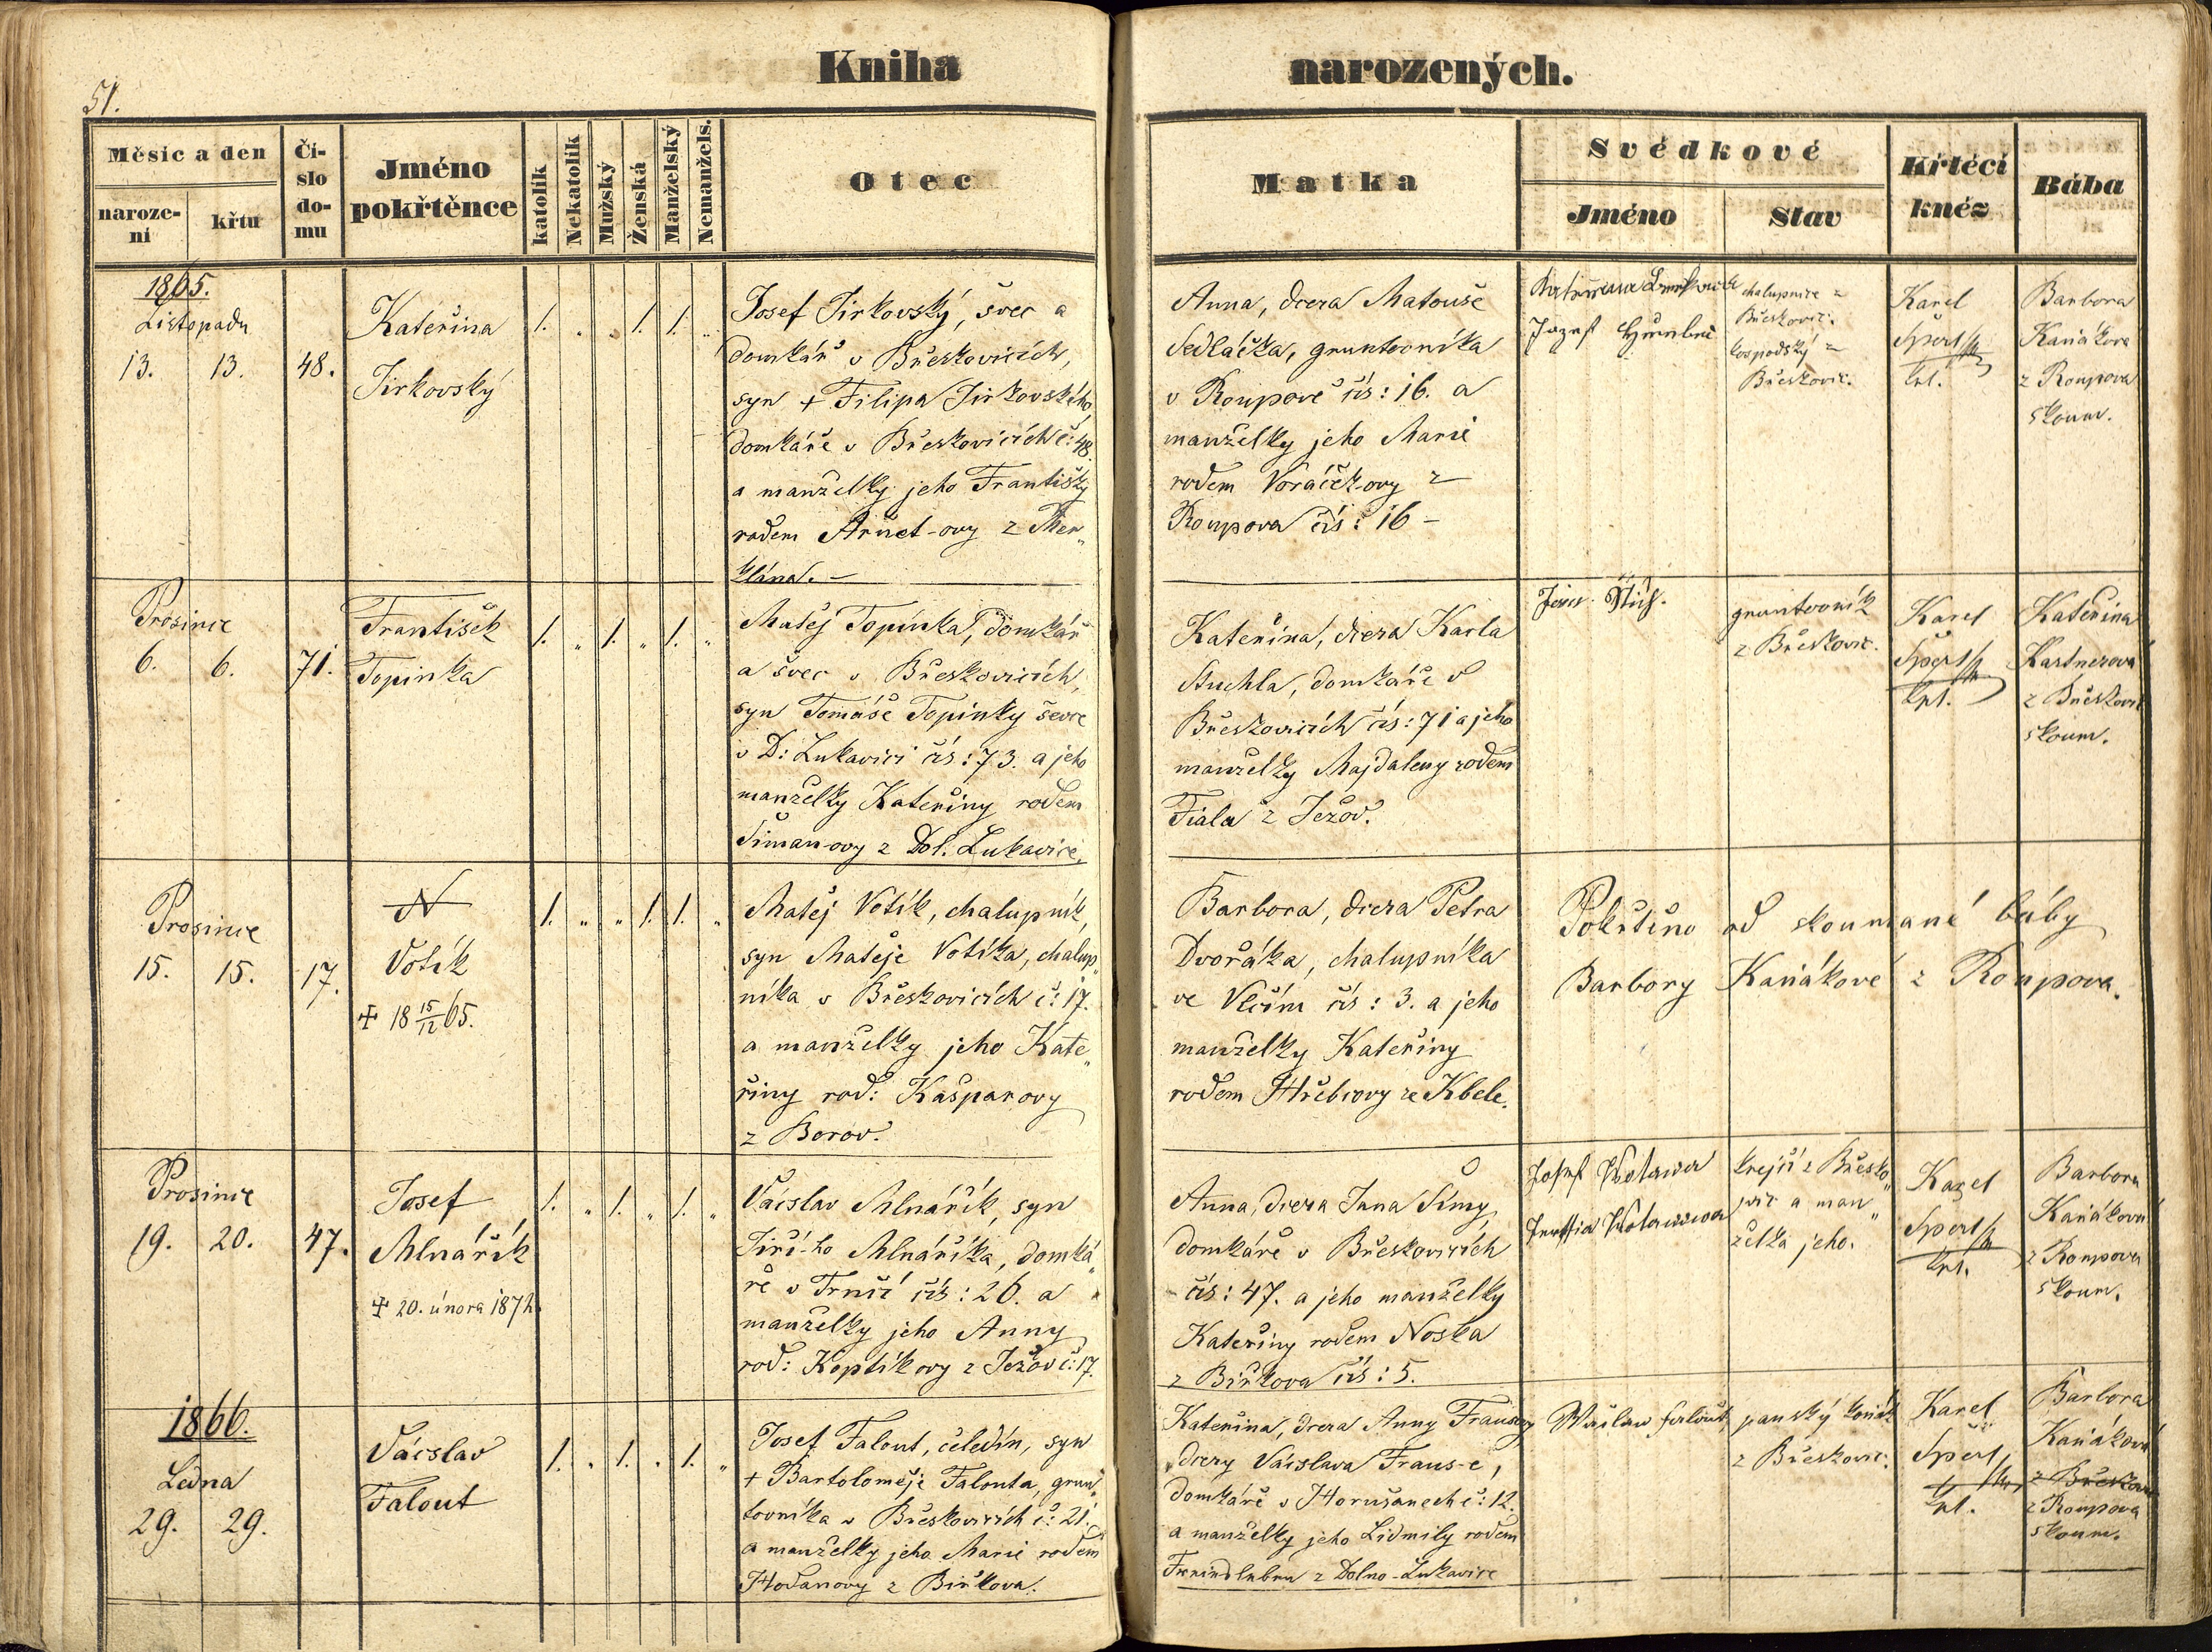 51.
Kniha narozených.
Měsíc a den
naroze-
ní
křtu
Čí-
slo
do-
mu
Jméno
pokřtěnce
katolík
Nekatolík
Mužský
Ženská
Manželský
Nemanžels.
Otec
Matka
Svědkové
Jméno
Stav
Křtécí
kněz
Bába
1865.
Listopadu
13. 13. 48.
Kateřina
Jirkovský
1. „ „ 1. 1. „
Josef Jirkovský, švec a
domkář v Břeskovicích,
syn + Filipa Jirkovského,
domkáře v Břeskovicích č: 48.
a manželky jeho Františky
rodem Arnet-ovy z Mer„
klína. –
Anna, dcera Matouše
Sedláčka, gruntovníka
v Roupově čís: 16. a
manželky jeho Marie
rodem Voráčk-ovy z
Roupova čís: 16 –
Jozef
chalupnice z
Břeskovic.
hospodský z
Břeskovic.
Karel
Šperl
kpl.
Barbora
Kaňákova
z Roupova
skoum.
Prosince
6. 6. 71.
František
Topinka
1. „ 1. „ 1. „
Matěj Topinka, domkář
a švec v Břeskovicích,
syn Tomáše Topinky ševce
v D: Lukavici čís: 73. a jeho
manželky Kateřiny rodem
Šiman-ovy z Dol. Lukavice.
Kateřina, dcera Karla
Stuchla, domkáře v
Břeskovicích čís: 71 a jeho
manželky Majdaleny rodem
Fiala z Ježov.
gruntovník
z Břeskovic.
Karel
Šperl
kpl.
Kateřina
Kastnerová
z Břeskovic
skoum.
Prosince
15. 15. 17.
N
Votík
✝ 18 15/12 65.
1. „ „ 1. 1. „
Matěj Votík, chalupník,
syn Matěje Votíka, chalup„
níka v Břeskovicích č: 17.
a manželky jeho Kate„
řiny rod: Kašparovy
z Borov.
Barbora, dcera Petra
Dvořáka, chalupníka
ve Vlčím čís: 3. a jeho
manželky Kateřiny
rodem Hřebcovy ze Kbele.
Pokřtěno od skoumané báby
Barbory Kaňákové z Roupova.
Prosince
19. 20. 47.
Josef
Mlnářík
✝ 20. února 1872.
1. „ 1. „ 1. „
Václslav Mlnářík, syn
Jiří-ho Mlnáříka, domká„
ře v Trnčí čís: 26. a
manželky jeho Anny
rod: Koptíkovy z Ježov č: 17.
Anna, dcera Jana Šímy,
domkáře v Břeskovicích
čís: 47. a jeho manželky
Kateřiny rodem Noska
z Biřkova čís: 5.
Josef Wotawa
Wotawowa
krejčí z Břesko„
vic a man„
želka jeho.
Karel
Šperl
kpl.
Barbora
Kaňáková
z Roupova
skoum.
1866.
Ledna
29. 29.
Václslav
Falout
1. „ 1. „ 1. „
Josef Falout, čeledín, syn
+ Bartoloměje Falouta, grun„
tovníka v Břeskovicích č: 21.
a manželky jeho Marie rodem
Hodanovy z Biřkova.
Kateřina, dcera Anny Frausovy
dcery Václslava Fraus-e,
domkáře v Horušanech č: 12.
a manželky jeho Lidmily rodem
z Dolno-Lukavice
Wáclaw Falout,
panský
z Břeskovic.
Karel
Šperl
kpl.
Barbora
Kaňáková
z Břeskovic
z Roupova
skoum.